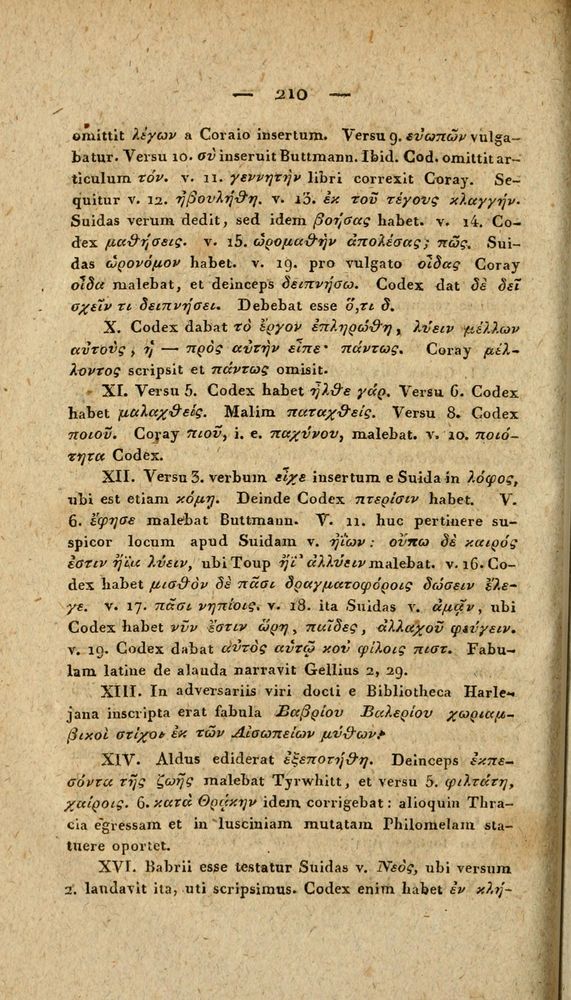 — 210 —
omittit λέγων a Coraio insertum. Versu 9. εὐωπῶν vulga-
batur. Versu 10. σὺ inseruit Buttmann. Ibid. Cod. omittit ar-
ticulum τόν. v. 11. γεννητὴν libri correxit Coray. Se-
quitur v. 12. ἠβουλήθη. v. 13. ἐκ τοῦ τέγους κλαγγήν.
Suidas verum dedit, sed idem βοήσας habet. v. 14. Co-
dex μαθήσεις. v. 15. ὡρομαθὴν ἀπολέσας; πῶς. Sui-
das ὡρονόμον habet. v. 19. pro vulgato οἶδας Coray
οἶδα malebat, et deinceps δειπνήσω. Codex dat δὲ δεῖ
σχεῖν τι δειπνήσει. Debebat esse ὅ,τι δ.
X. Codex dabat τὸ ἔργον ἐπληρώθη, λύειν μέλλων
αὐτούς, ἡ — πρὸς αὐτὴν εἶπε· πάντως. Coray μέλ-
λοντος scripsit et πάντως omisit.
XI. Versu 5. Codex habet ἦλθε γάρ. Versu 6. Codex
habet μαλαχθείς. Malim παταχθείς. Versu 8. Codex
ποιοῦ. Coray πιοῦ, i. e. παχύνου, malebat. v. 10. ποιό-
τητα Codex.
XII. Versu 3. verbum εἶχε insertum e Suida in λόφος,
ubi est etiam κόμη. Deinde Codex πτερίσιν habet. V.
6. ἔφησε malebat Buttmann. V. 11. huc pertinere su-
spicor locum apud Suidam v. ἠΐων: οὔπω δὲ καιρός
ἐστιν ἤϊα λύειν, ubi Toup ἤϊ᾽ ἀλλύειν malebat. v. 16. Co-
dex habet μισθὸν δὲ πᾶσι δραγματοφόροις δώσειν ἔλε-
γε. v. 17. πᾶσι νηπίοις. v. 18. ita Suidas v. ἀμᾷν, ubi
Codex habet νῦν ἐστιν ὥρη, παῖδες, ἀλλαχοῦ φεύγειν.
v. 19. Codex dabat αὐτὸς αὐτῷ κοὐ φίλοις πιστ. Fabu-
lam latine de alauda narravit Gellius 2, 29.
XIII. In adversariis viri docti e Bibliotheca Harle-
jana inscripta erat fabula Βαβρίου Βαλερίου χωριαμ-
βικοὶ στίχοι ἐκ τῶν Αἰσωπείων μύθων.
XIV. Aldus ediderat ἐξεποτήθη. Deinceps ἐκπε-
σόντα τῆς ζωῆς malebat Tyrwhitt, et versu 5. φιλτάτη,
χαίροις. 6. κατὰ Θρᾴκην idem corrigebat: alioquin Thra-
cia egressam et in lusciniam mutatam Philomelam sta-
tuere oportet.
XVI. Babrii esse testatur Suidas v. Νεός, ubi versum
2. laudavit ita, uti scripsimus. Codex enim habet ἐν κλή-